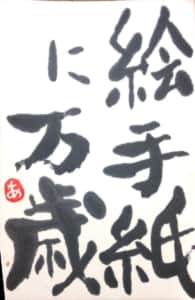 絵手紙
に万歳
あ